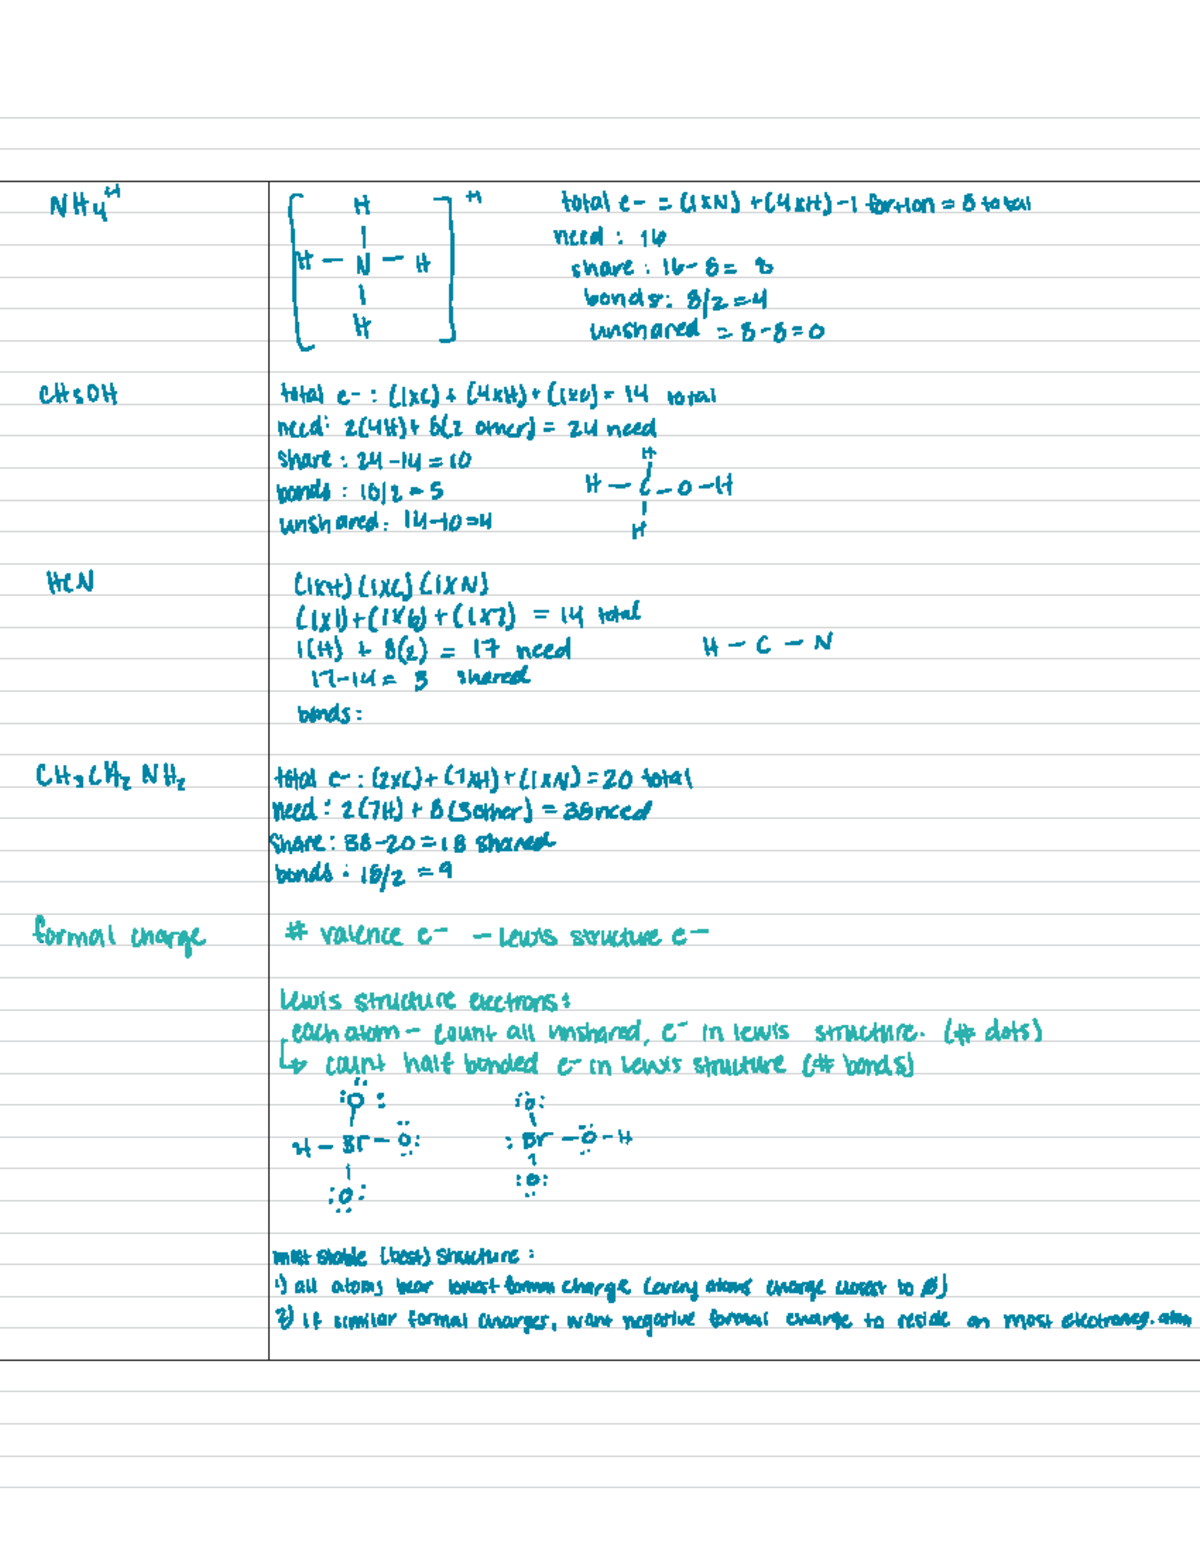 NH4+
H
H — N — H
H
+
total e- = (1xN) + (4xH) -1 for +ion = 8 total
need : 16
share : 16-8 = 8
bonds : 8/2 = 4
unshared = 8-8 = 0
CH3OH
total e- : (1xC) + (4xH) + (1xO) = 14 total
need: 2(4H) + 8(2 other) = 24 need
share : 24-14 = 10
bonds : 10/2 = 5
unshared: 14-10=4
H
H — C — O — H
H
HCN
(1xH) (1xC) (1xN)
(1x1)+(1x6)+(1x7) = 14 total
1(H) + 8(2) = 17 need
17-14 = 3 shared
bonds :
H — C — N
CH3CH2NH2
total e- : (2xC)+(7xH)+(1xN) = 20 total
need : 2(7H) + 8(3 other) = 38 need
share : 38-20 = 18 shared
bonds : 18/2 = 9
formal charge
# valence e- - lewis structure e-
Lewis structure electrons:
each atom - count all unshared, e- in lewis structure. (# dots)
↳ count half bonded e- in Lewis structure (# bonds)
:O:
H — Br — O:
:O:
:O:
:Br — O — H
:O:
most stable (best) structure :
1) all atoms bear lowest formal charge (every atoms charge closest to Ø)
2) if similar formal charges, want negative formal charge to reside on most electroneg. atom